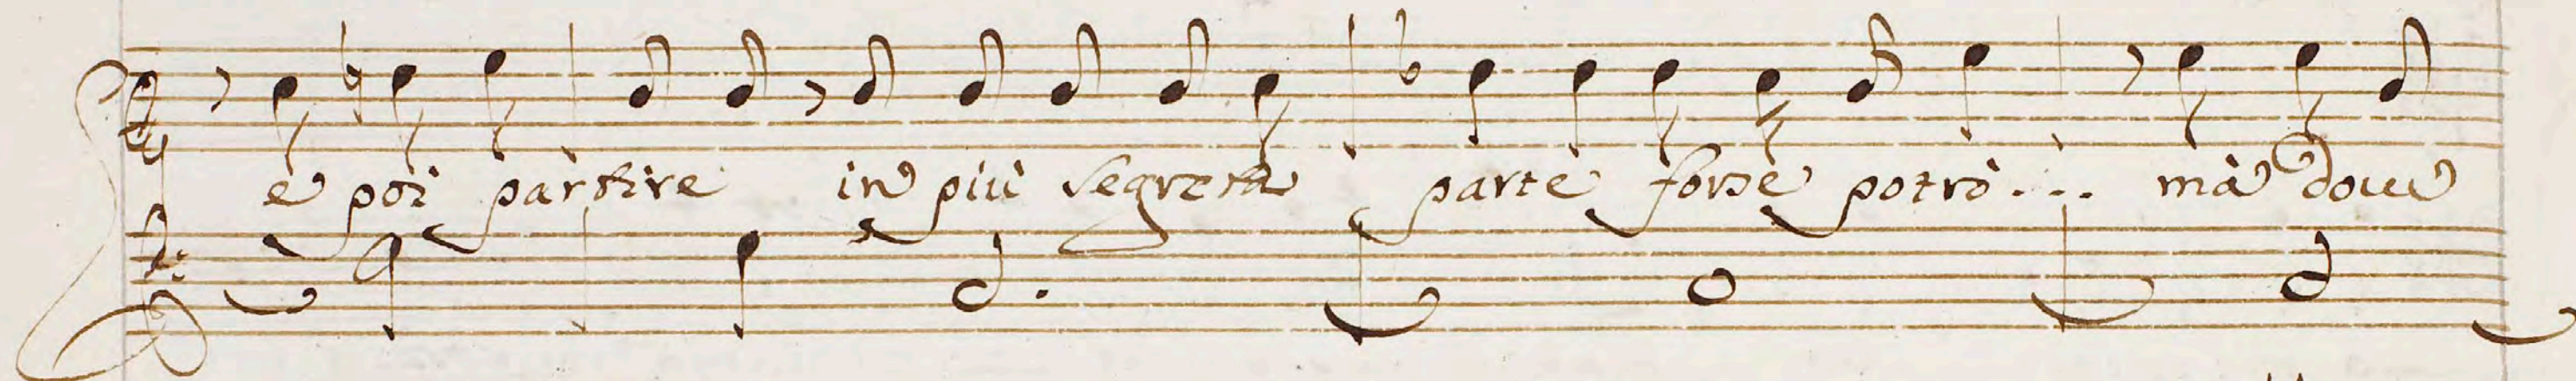 e poi partire in più segreta parte forse potrò.... mà doue